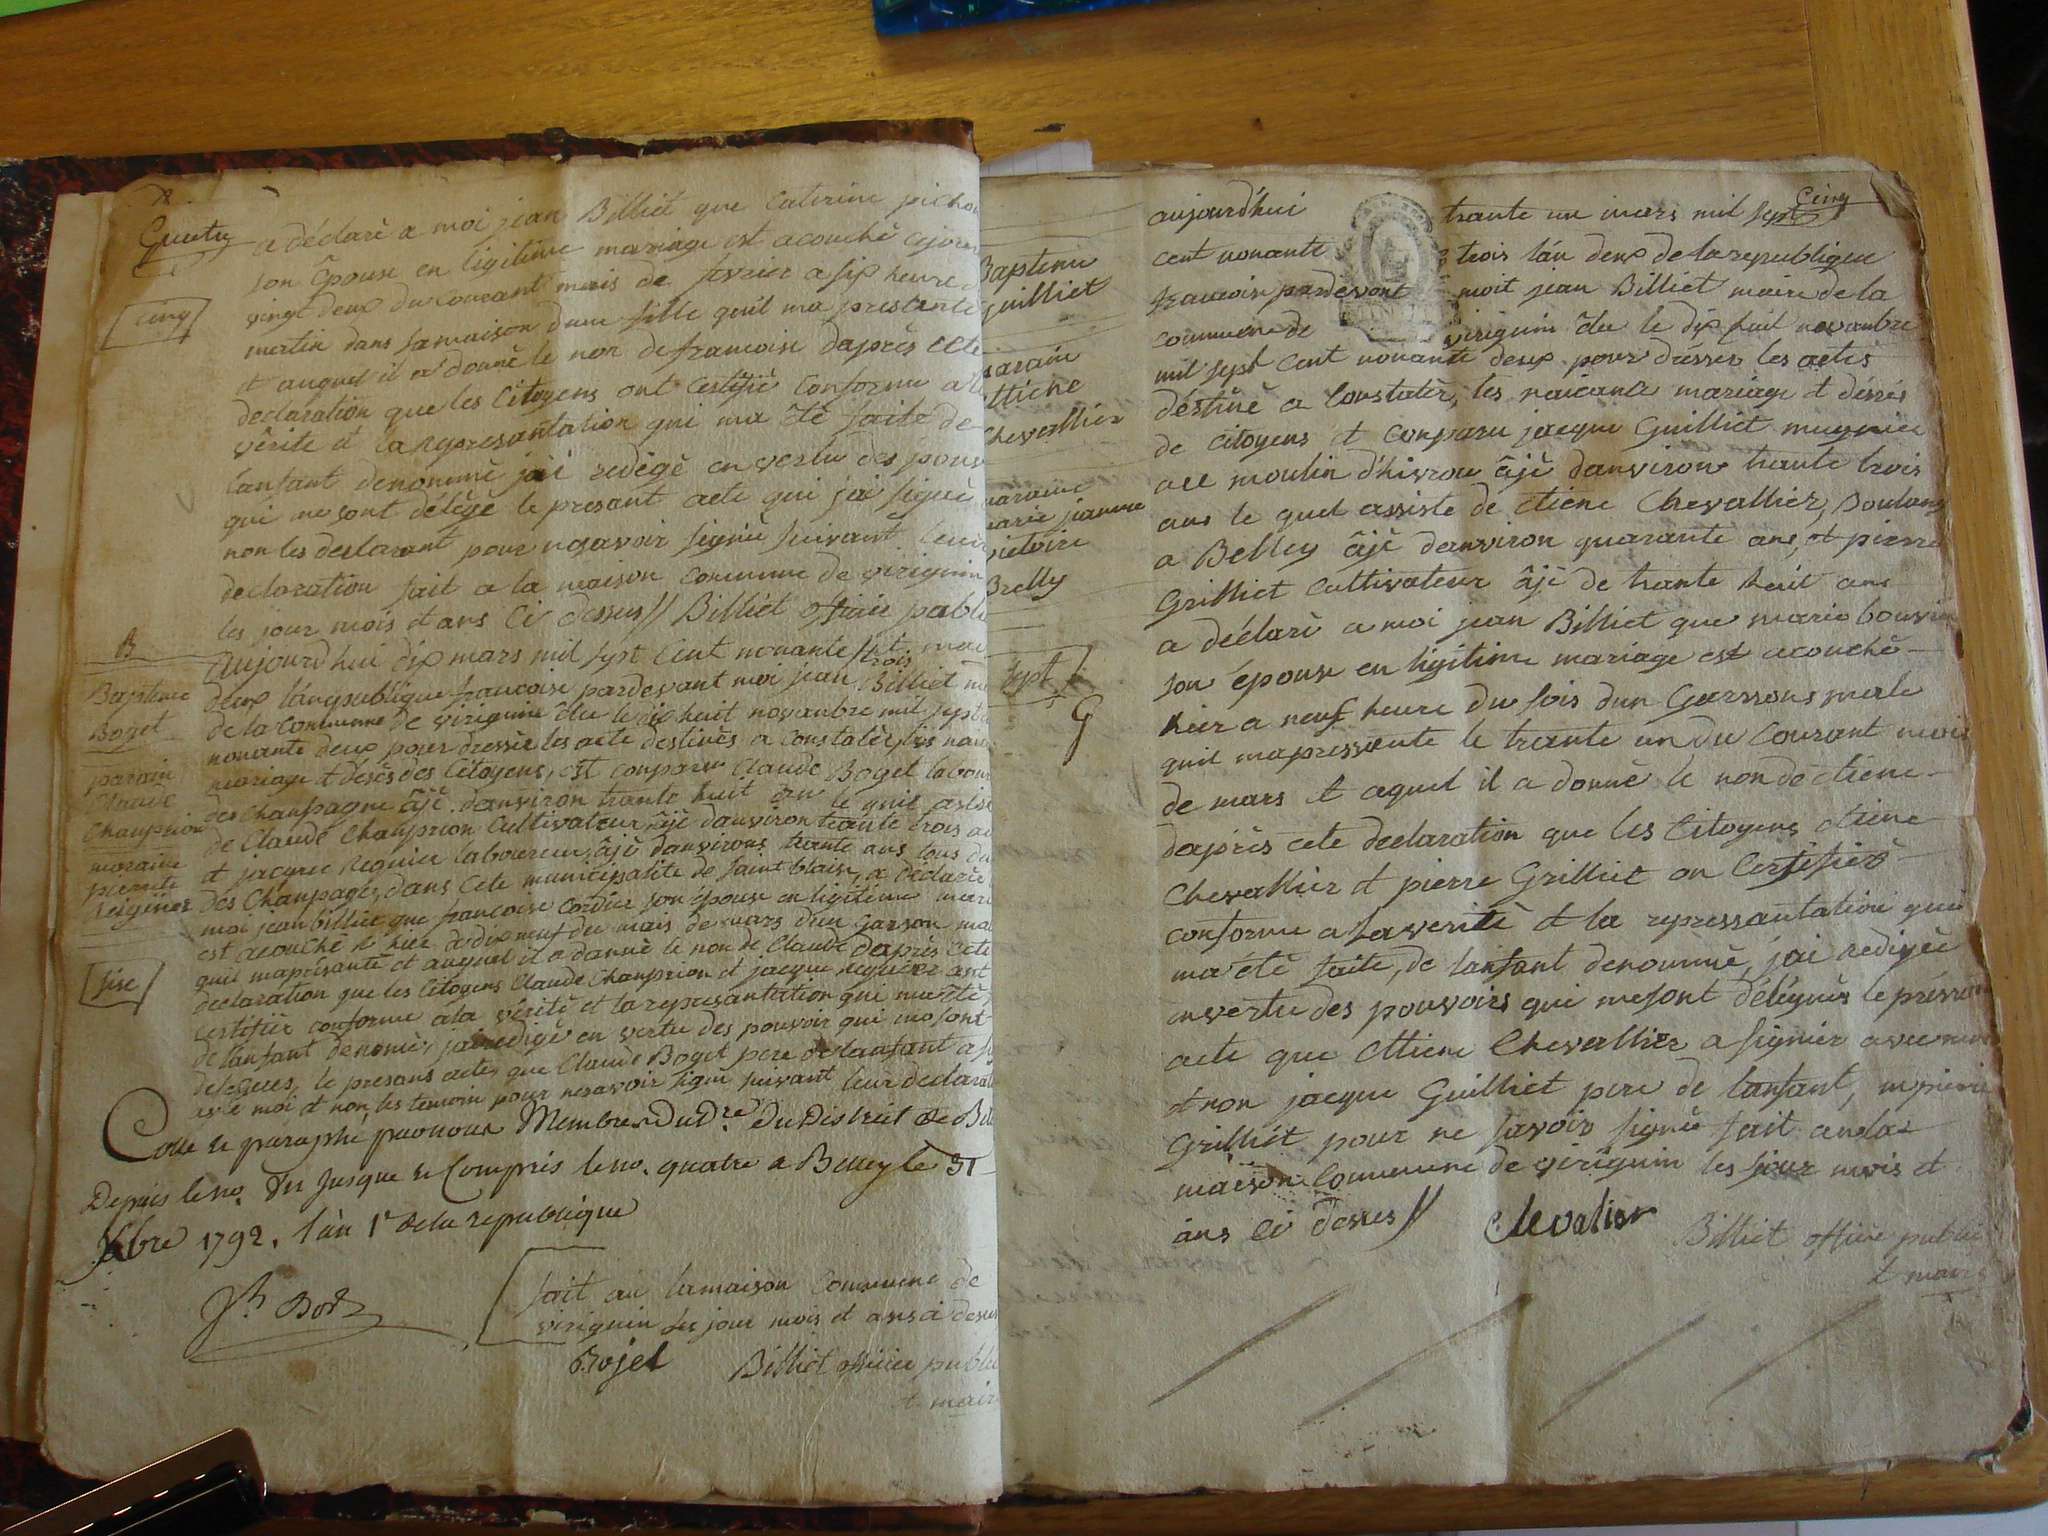 Quatre
cinq
a déclaré a moi jean Billiet que Caterine pichon
son épouse en légitime mariage est acouché cejour
vingt deux du courant mois de fevrier a six heure
matin dans samaison dune fille quil ma presenté
et auquel il a donné le non defrancoise daprès cete
declaration que les Citoyens ont Certifié Conforme a la
vérite et la represantation qui ma été faite de
lanfant denommé jai redégé envertu des pouv
qui me sont délégé le presant acte qui jai signé
non les declarant pour nesavoir signé suivant leur
declaration fait a la maison commune de virignin
les jour mois et ans Ci dessus // Billiet officie public
et mai
B
Bapteme
Boget
parain
Claude
Chanprion
moraine
pierrete
Reignier
sixe
aujourdhui dix mars mil sept cent nonante trois
deux lanrepublique francoise pardevant moi jean Billiet m
de la Commune de virignin élu le dix huit novanbre mil sept
nonante deux pour dressér les acte destinés a constatér, les nai
mariage et désés des Citoyens, est conparu Claude Boget labour
des Chanpagne âjé danviron trante huit an le quil asisté
de Claude Chanprion Cultivateur, âjé danviron trante trois an
et jacque Regnier laboureur, âjé danvirons trante ans tous de
des Chanpages, dans Cete municipalité de saint blaise, a Déclaré
moi jean billiet que francoise Cordier son épouse en légitime mari
est acouché hier a dix neuf du mais de mars d'un garson mal
quil maprésanté et auquel il a danné le non de Claude daprès Cete
declaration que les Citoyens Claude Chanprion et jacque regnier ont
certifier conforme ala vérité et la represantation qui ma été
de lanfant denomé, jai redigé en vertu des pouvoir qui me sont
delegues, le presans acte, que Claude Boget pere de lanfant a si
avé moi et non, les temoin pour nesavoir signé suivant leur declarat
Cotté et paraphé par nous Membre Du D.re Du District de Bel
Depuis le no. un jusque et Compris le no. quatre a Belley le 31
Xbre 1792. l'an 1r de la republique
fait an lamaison Commune de
virignin les jour mois et ans ci desus
Bojet Billiet officier public
et maire
Cinq
Bapteme
guilliet
parain
ettiene
Chevallier
maraine
marie jeanne
victoire
Brelly
sept
G
aujourd'hui trante un mars mil sept
cent nonante trois l'an deux de la republique
francoise pardevant moit jean Billiet maire de la
commune de virignin élu le dix huit novanbre
mil sept cent nonante deux pour drésser les actes
déstiné a Constatér, les naicance mariage et déssés
de citoyens et conparu jacque Guilliet mugnier
au moulin d'hivrou âjé danviron trante trois
ans le quel assiste de etiene Chevallier, Boulang
a Belley âjé danviron quarante ans, et pierre
Grilliet cultivateur âjé de trante huit ans
a déclaré a moi jean Billiet que marie bouvier
son épouse en légitime mariage est acouché
hier a neuf heure du sois dun Garssons male
quil mapressante le trante un du Courant mois
de mars et aquel il a donné le non de etiene
daprès cete declaration que les Citoyens etiene
Chevallier et pierre Grilliet on Certifiér
conforme a laverité et la repressantation qui
ma été faite, de lanfant denommé, jai redigée
anvertu des pouvoirs qui mesont délégués le présant
acte que ettiene Chevallier a signiér avec moi
et non jacque Guilliet pere de lanfant, ni pierre
Grilliét pour ne savoir signé fait an la
maison Commune de virignin les jour mois et
ans Ci desses // Chevalier
Billiet officie public
et maire